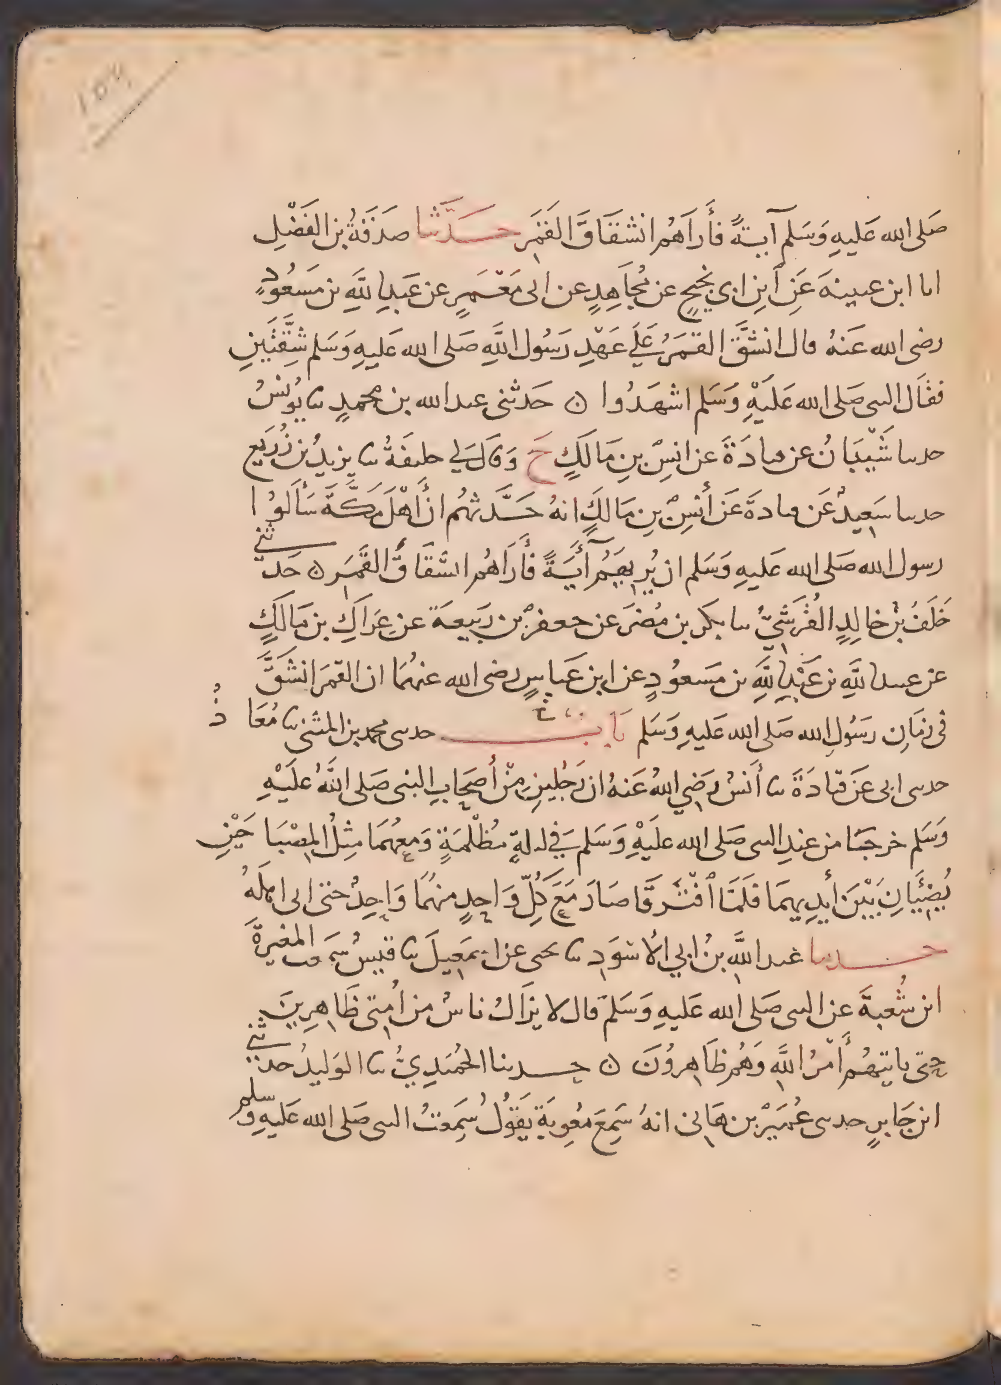 ١٥٦
صَلى الله عَليهِ وَسَلم آيةً فأَراَهُم انشقَاقَ القَمَر حَدَّثنا صَدَقةُ بن الفَضْلِ
اما ابن عيينهَ عَنِ ابنِ ابي نجيحٍ عن مُجاهِدٍ عن ابى مَعْمَرٍ عن عَبدِ اللَّهِ بن مَسعُودٍ
رضى الله عَنهُ قال انشقَّ القمَرُ عَلَى عَهْدِ رَسُول اللَّهِ صَلى الله عَليهِ وَسَلم شِقَّتَينِ
فقَال النبى صَلى الله عَلَيْهِ وَسَلم اشهَدُوا ن حَدثنى عبد الله بن محمدٍ نا يُونسُ
حدثنا شَيْبَانُ عن قتادَةَ عن انسِ بنِ مَالكٍ حَ وَقالَ لي خليفَةُ نا يزيدُ بن زُرَيع
حدثنا سَعِيدٌ عَن قتادةَ عَن أنسِ بنِ مَالكٍ انهُ حَدَّثهُم انَّ اَهْلَ مَكَّةَ سَألُوا
رسول الله صَلى الله عَليهِ وَسَلم ان يُرِيَهُم آيَةً فأَراَهُم انشقَاقَ القَمَر ن حَدثني
خَلَفُ بنُ خالِدٍ القُرَشِيُّ نا بكر بن مُضَرَ عن جعفر بن رَبيعَة عن عِرَاكِ بن مَالكٍ
عن عبيد اللَّهِ بن عَبْدِ اللَّهِ بن مَسعُودٍ عن ابن عَباسٍ رضى الله عنهُمَا ان القمَرَ انشَقَّ
فى زمَانِ رَسُولِ الله صَلى الله عَليهِ وَسَلم بَاب حدثنى محمد بن المثنى نا مُعَاذُ
حدثنى ابى عَن قتادَةَ نا أنَسُ رَضِي اللهُ عَنهُ ان رَجُلينِ مِنْ أصحَابِ النبى صَلى اللَّهُ عَلَيْهِ
وَسَلم خرجَا من عندِ النبى صَلى الله عَلَيْهِ وَسَلم فِي ليلةٍ مُظْلمَةٍ وَمعهُمَا مثِلُ المِصْبَاحَيْنِ
يُضِيئَانِ بَيْنَ أيدِيهِمَا فلَمَّا افْتَرَقَا صَارَ مَعَ كُلِّ وَاحِدٍ منهُمَا وَاحِدٌ حتى اتى اهلَهُ
حدثنا عبد اللَّهِ بنُ ابي الأسْوَدِ نا يحيى عن اسمَعِيلَ نا قيسُ سَمعتُ المغيرَةَ
ابن شُعبَةَ عن النبى صَلى الله عَليهِ وَسَلم قال لا يزَالُ ناسٌ من اُمتى ظَاهِرِينَ
حتى ياتيَهُم أمْرُ اللَّهِ وَهُم ظَاهِرُونَ ن حدثنا الحُمَيدِيُّ نا الوَليدُ حدثني
ابن جَابرٍ حدثنى عُمَيْر بن هَانِى انهُ سَمعَ مُعوِيَةَ يَقوُلُ سَمعتُ النبى صَلى الله عَليهِ وَسلم